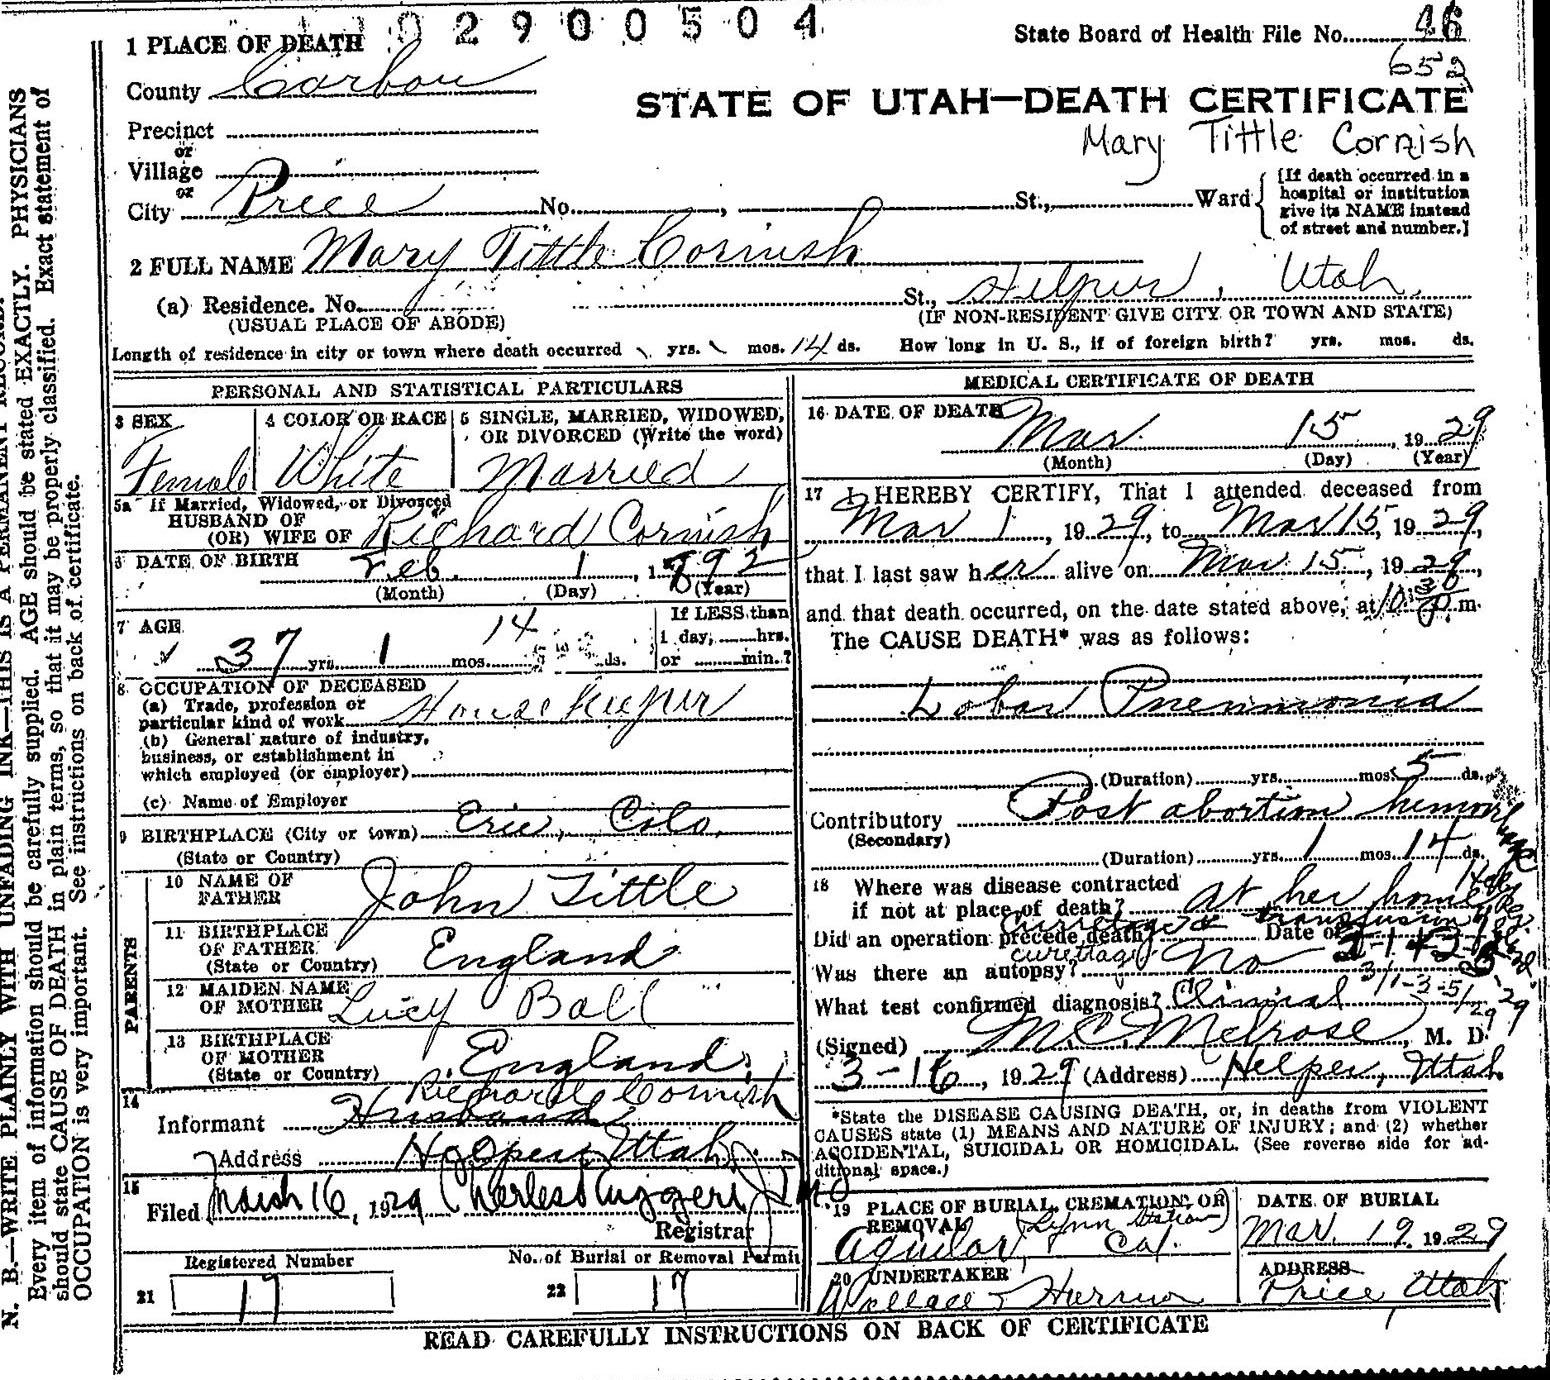 2900504
1 PLACE OF DEATH
State Board of Health File No. 46
652
County Carbon
STATE OF UTAH—DEATH CERTIFICATE
Precinct
or
Mary Tittle Cornish
Village
or
City Price No. , St., Ward
[If death occurred in a
hospital or institution
give its NAME instead
of street and number.]
2 FULL NAME Mary Tittle Cornish
(a) Residence. No. St., Helper, Utah.
(USUAL PLACE OF ABODE) (IF NON-RESIDENT GIVE CITY OR TOWN AND STATE)
Length of residence in city or town where death occurred \ yrs. \ mos. 14 ds. How long in U. S., if of foreign birth? yrs. mos. ds.
PERSONAL AND STATISTICAL PARTICULARS
3 SEX
Female
4 COLOR OR RACE
White
5 SINGLE, MARRIED, WIDOWED,
OR DIVORCED (Write the word)
Married
5a If Married, Widowed, or Divorced
HUSBAND OF
(OR) WIFE OF Richard Cornish
6 DATE OF BIRTH Feb. 1, 1892
(Month) (Day) (Year)
7 AGE
37 yrs. 1 mos. 14 ds.
If LESS than
1 day, hrs.
or min.?
8 OCCUPATION OF DECEASED
(a) Trade, profession or
particular kind of work Housekeeper
(b) General nature of industry,
business, or establishment in
which employed (or employer)
(c) Name of Employer
9 BIRTHPLACE (City or town) Erie, Colo.
(State or Country)
PARENTS
10 NAME OF
FATHER John Tittle
11 BIRTHPLACE
OF FATHER England
(State or Country)
12 MAIDEN NAME
OF MOTHER Lucy Ball
13 BIRTHPLACE
OF MOTHER England
(State or Country)
14 Richard Cornish
Informant Husband
Address Helper, Utah
15
Filed March 16, 1929 Charles Ruggeri
Registrar
Registered Number
21 17
No. of Burial or Removal Permit
22 17
MEDICAL CERTIFICATE OF DEATH
16 DATE OF DEATH Mar. 15, 1929
(Month) (Day) (Year)
17 I HEREBY CERTIFY, That I attended deceased from
Mar 1, 1929, to Mar 15, 1929,
that I last saw her alive on Mar 15, 1929,
and that death occurred, on the date stated above, at 10:30 P m.
The CAUSE DEATH* was as follows:
Lobar Pneumonia
(Duration) yrs. mos. 5 ds.
Contributory Post abortion hemorrhage
(Secondary)
(Duration) yrs. 1 mos. 14 ds.
18 Where was disease contracted
if not at place of death? At her home
curettage & transfusion
Did an operation precede death? Date of
curettage
Was there an autopsy? No
3/1-3-5/29
What test confirmed diagnosis? Clinical
(Signed) M.C. Melrose, M. D.
3-16, 1929 (Address) Helper, Utah
*State the DISEASE CAUSING DEATH, or, in deaths from VIOLENT
CAUSES state (1) MEANS AND NATURE OF INJURY; and (2) whether
ACCIDENTAL, SUICIDAL OR HOMICIDAL. (See reverse side for ad-
ditional space.)
19 PLACE OF BURIAL, CREMATION, OR
REMOVAL (Lynn Station)
Aguilar, Col.
DATE OF BURIAL
Mar. 19. 1929
20 UNDERTAKER
Wallace
ADDRESS
Price, Utah
READ CAREFULLY INSTRUCTIONS ON BACK OF CERTIFICATE
N. B.—WRITE PLAINLY WITH UNFADING INK—THIS IS A PERMANENT RECORD.
Every item of information should be carefully supplied. AGE should be stated EXACTLY. PHYSICIANS
should state CAUSE OF DEATH in plain terms, so that it may be properly classified. Exact statement of
OCCUPATION is very important. See instructions on back of certificate.